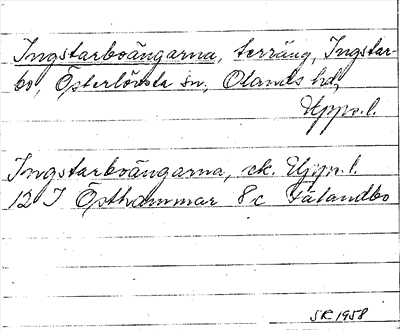 Ingstarboängarna, terräng, Ingstar-
bo, Österlövsta sn, Olands hd,
Upps.l.
Ingstarboängarna, ek. Upps.l.
12 I Östhammar 8c Fälandbo
SR 1958